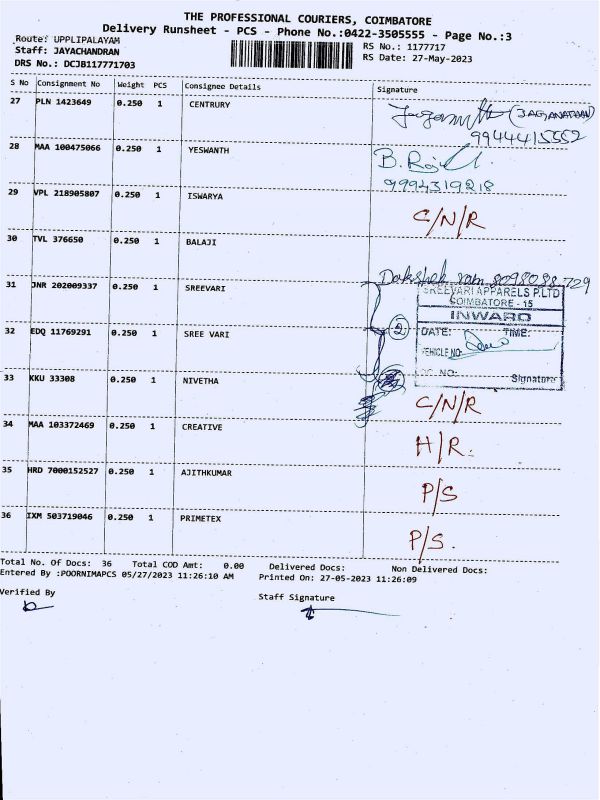 THE PROFESSIONAL COURIERS, COIMBATORE
Delivery Runsheet - PCS - Phone No.:0422-3505555 - Page No.:3
Route: UPPLIPALAYAM
RS No.: 1177717
Staff: JAYACHANDRAN
RS Date: 27-May-2023
DRS No.: DCJB117771703
S No Consignment No Weight PCS Consignee Details Signature
27 PLN 1423649 0.250 1 CENTRURY
(JAGANATHAN)
9944415552
28 MAA 100475066 0.250 1 YESWANTH
9994319218
29 VPL 218905807 0.250 1 ISWARYA C/N/R
30 TVL 376650 0.250 1 BALAJI
Dakshek ram 8098088729
31 JNR 202009337 0.250 1 SREEVARI
SREEVARI APPARELS P.LTD
COIMBATORE - 15
INWARD
32 EDQ 11769291 0.250 1 SREE VARI
2
DATE: TIME:
VEHICLE NO:
NO: Signature
33 KKU 33308 0.250 1 NIVETHA C/N/R
34 MAA 103372469 0.250 1 CREATIVE H/R.
35 HRD 7000152527 0.250 1 AJITHKUMAR P/S
36 IXM 503719046 0.250 1 PRIMETEX P/S.
Total No. Of Docs: 36 Total COD Amt: 0.00 Delivered Docs: Non Delivered Docs:
Entered By :POORNIMAPCS 05/27/2023 11:26:10 AM Printed On: 27-05-2023 11:26:09
Verified By
Staff Signature